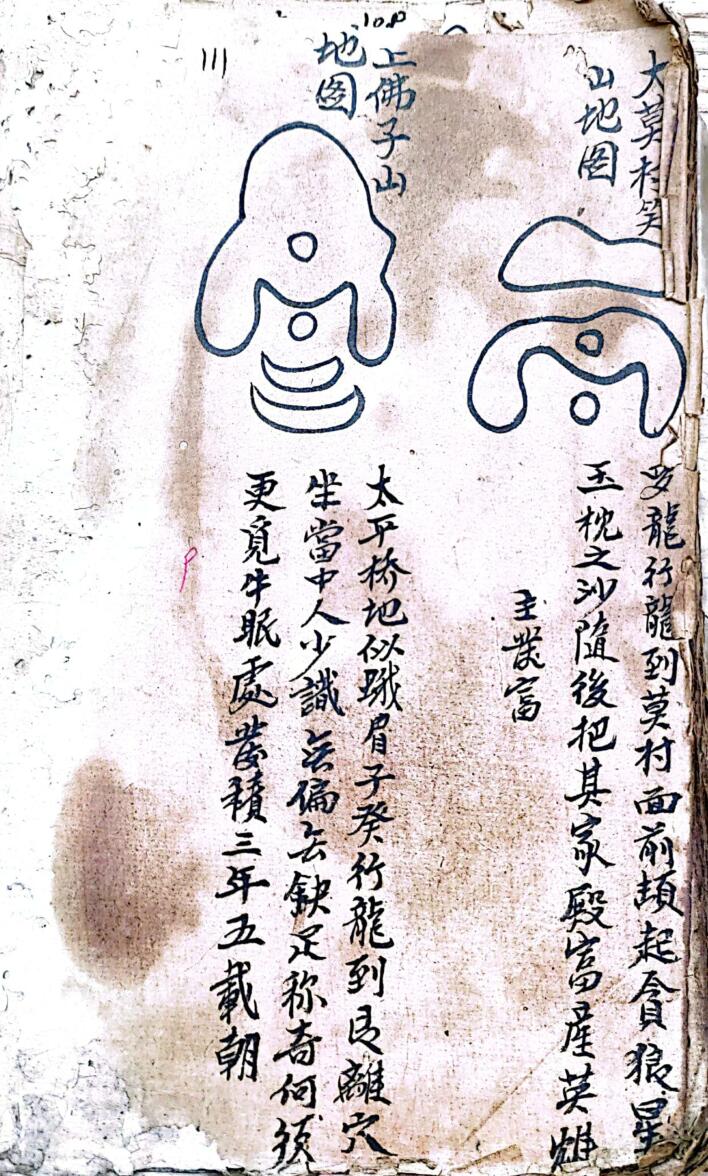 大莫村笑
山地图
罗龍行龍到莫村面前頡起貪狼星
玉枕之沙隨後把其家殷富産英雄
主發富
上佛子山
地图
太平桥地似蛾眉子癸行龍到艮離穴
坐當中人少識无偏无缺足称奇何须
更覓牛眠處蓄積三年五載朝
111
108